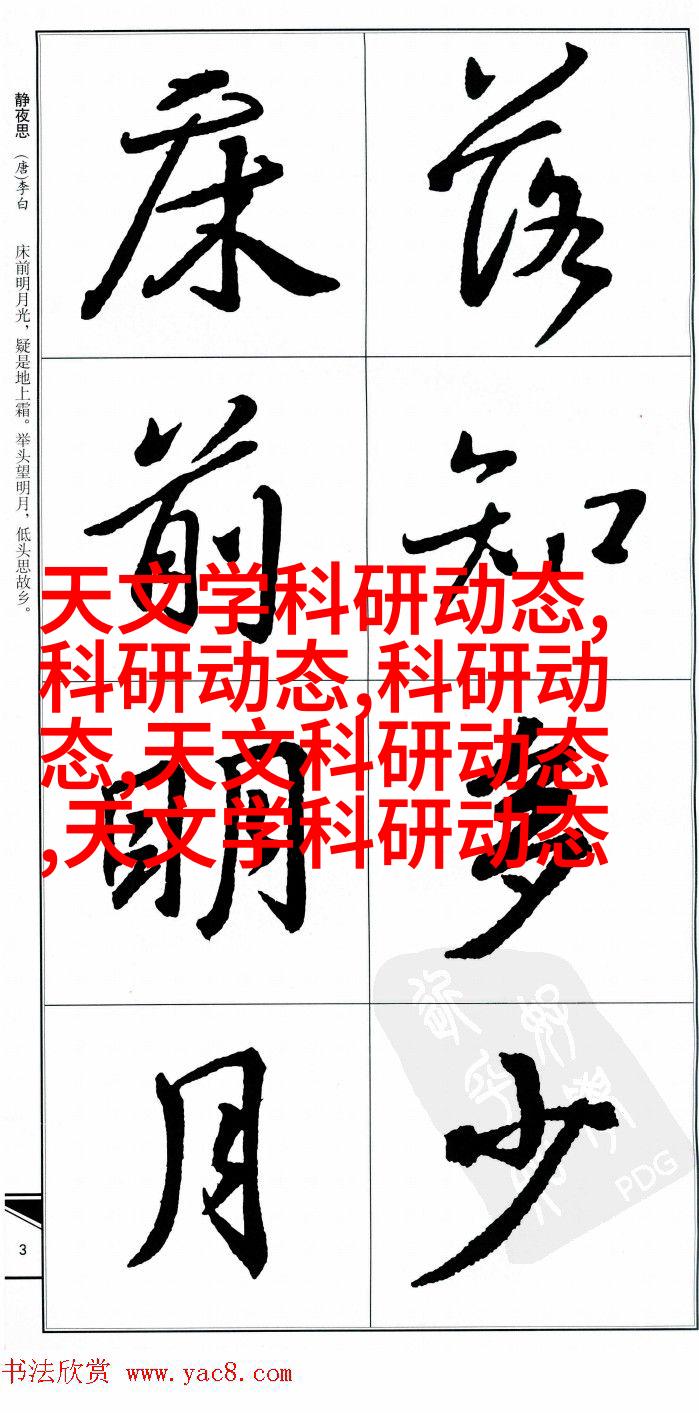 落知多少
床前明月
静夜思 (唐)李白 床前明月光，疑是地上霜。举头望明月，低头思故乡。
天文学科研动态,
科研动态,科研动
态,天文科研动态
,天文学科研动态
PDG
3
书法欣赏 www.yac8.com